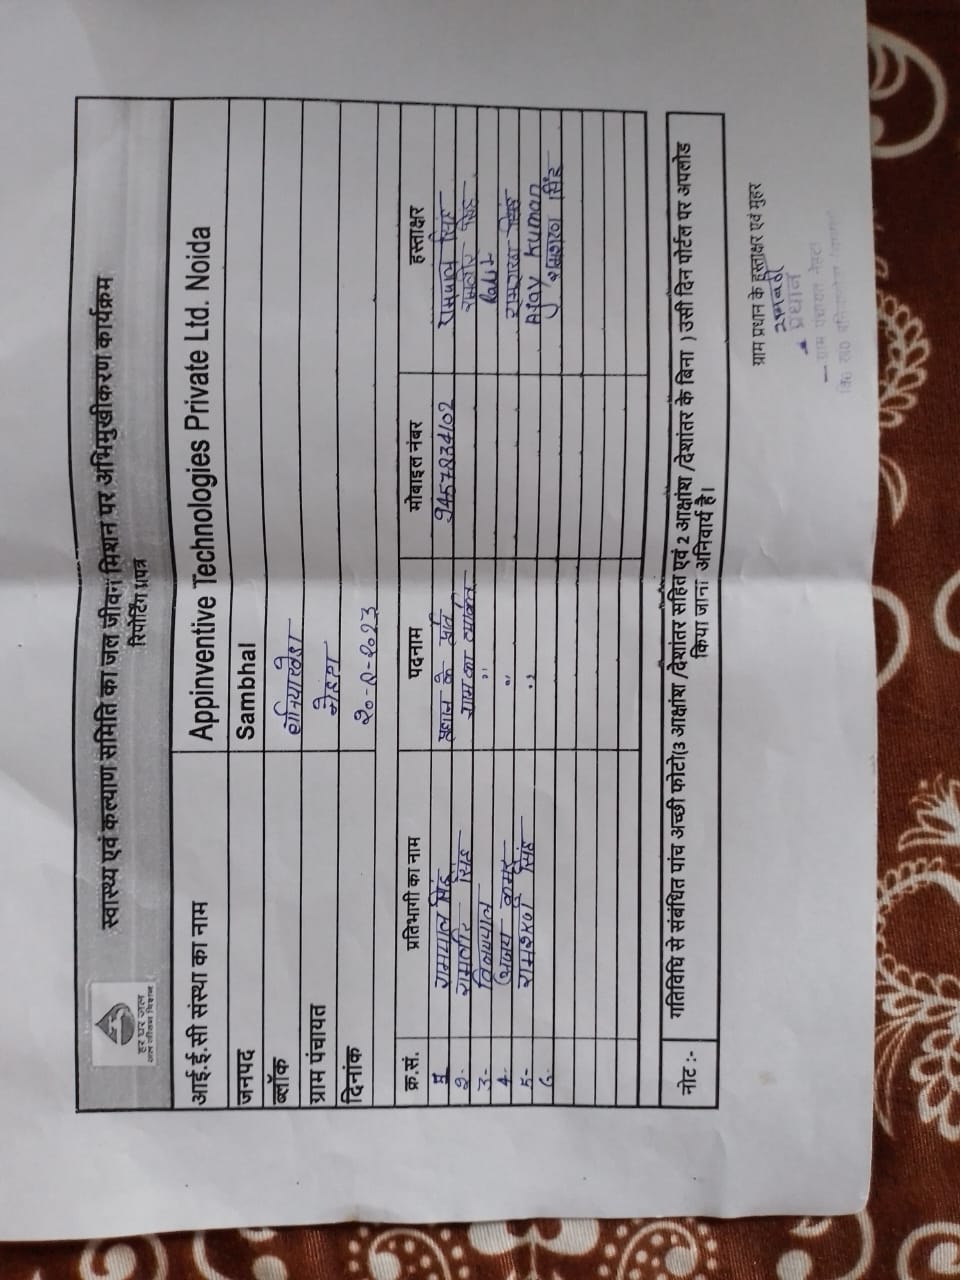 हर घर जल
जल जीवन मिशन
स्वास्थ्य एवं कल्याण समिति का जल जीवन मिशन पर अभिमुखीकरण कार्यक्रम
रिपोर्टिंग प्रपत्र
आई.ई.सी संस्था का नाम Appinventive Technologies Private Ltd. Noida
जनपद Sambhal
ब्लॉक बनियाखेडा
ग्राम पंचायत
दिनांक २०-९-२०२३
क्र.सं. प्रतिभागी का नाम पदनाम मोबाइल नंबर हस्ताक्षर
रामपाल सिंह प्रधान के 9457834102 रामपाल सिंह
२- रामवीर सिंह ग्राम का व्यक्ति रामवीर सिंह
३- विजयपाल "
4- अजय कुमार "
५- रामशरण सिंह " Ajay Kumar
6- रामशरण सिंह
नोट :- गतिविधि से संबंधित पांच अच्छी फोटो(3 आक्षांश /देशांतर सहित एवं 2 आक्षांश /देशांतर के बिना ) उसी दिन पोर्टल पर अपलोड
किया जाना अनिवार्य है।
ग्राम प्रधान के हस्ताक्षर एवं मुहर
प्रधान
ग्राम पंचायत